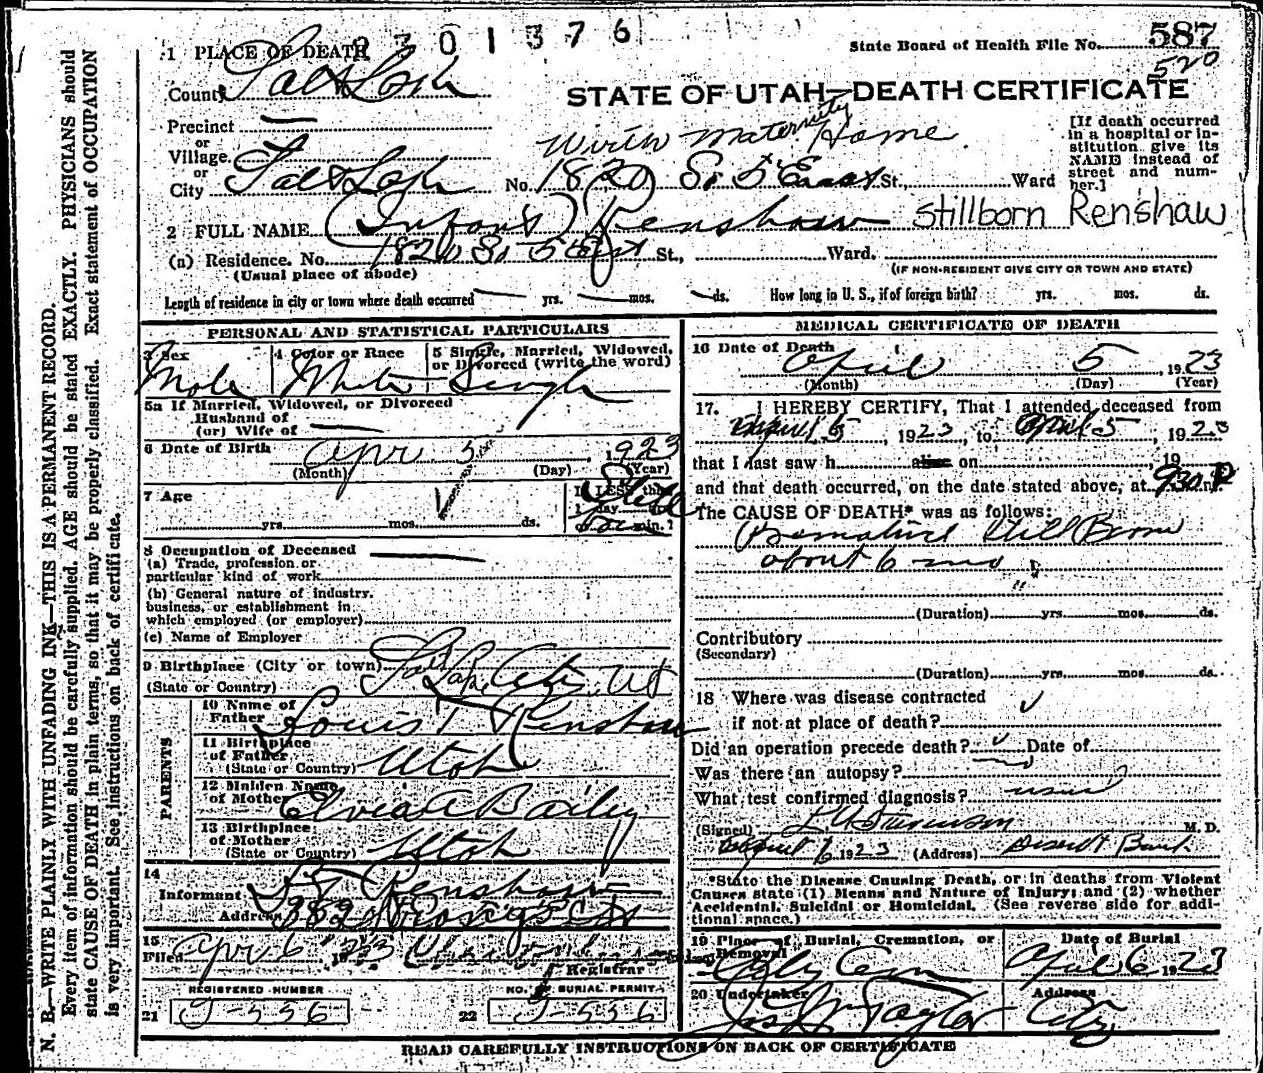 2301376
State Board of Health File No. 587
520
1 PLACE OF DEATH
County Salt Lake
STATE OF UTAH—DEATH CERTIFICATE
Precinct
or
Village
or
City Salt Lake
Wirth Maternity Home
No. 1820 So 5 East St., Ward
[If death occurred
in a hospital or in-
stitution give its
NAME instead of
street and num-
ber.]
2 FULL NAME (Infant) Renshaw Stillborn Renshaw
(a) Residence. No. 1820 So 5 East St., Ward.
(Usual place of abode) (IF NON-RESIDENT GIVE CITY OR TOWN AND STATE)
Length of residence in city or town where death occurred yrs. mos. ds. How long in U. S., if of foreign birth? yrs. mos. ds.
PERSONAL AND STATISTICAL PARTICULARS
3 Sex 4 Color or Race 5 Single, Married, Widowed,
or Divorced (write the word)
Male White Single
5a If Married, Widowed, or Divorced
Husband of
(or) Wife of
6 Date of Birth Apr 5 1923
(Month) (Day) (Year)
7 Age If LESS than
1 day
yrs. mos. ds. or min.?
8 Occupation of Deceased
(a) Trade, profession or
particular kind of work
(b) General nature of industry.
business, or establishment in
which employed (or employer)
(c) Name of Employer
9 Birthplace (City or town) Salt Lake City, Ut
(State or Country)
PARENTS
10 Name of
Father Louis T Renshaw
11 Birthplace
of Father
(State or Country) Utah
12 Maiden Name
of Mother Bailey
13 Birthplace
of Mother
(State or Country) Utah
14
Informant Renshaw
Address
15
Filed Apr 6 1923
Registrar
REGISTERED NUMBER NO. BURIAL PERMIT
21 J-536 22 J-536
MEDICAL CERTIFICATE OF DEATH
16 Date of Death
April 5, 1923
(Month) (Day) (Year)
17. I HEREBY CERTIFY, That I attended deceased from
April 5, 1923, to April 5, 1923
that I last saw h alive on , 19
and that death occurred, on the date stated above, at 930 P m.
The CAUSE OF DEATH* was as follows:
Premature Still Born
about 6 mo
(Duration) yrs. mos. ds.
Contributory
(Secondary)
(Duration) yrs. mos. ds.
18 Where was disease contracted
if not at place of death?
Did an operation precede death? Date of
Was there an autopsy?
What test confirmed diagnosis? usual
(Signed) M. D.
April 6 1923 (Address) Deseret Bank
*State the Disease Causing Death, or in deaths from Violent
Causes state (1) Means and Nature of Injury; and (2) whether
Accidental, Suicidal or Homicidal. (See reverse side for addi-
tional space.)
19 Place of Burial, Cremation, or
Removal Date of Burial
City Cem April 6 1923
20 Undertaker Address
Jas. Wm Taylor City
READ CAREFULLY INSTRUCTIONS ON BACK OF CERTIFICATE
N. B.—WRITE PLAINLY WITH UNFADING INK—THIS IS A PERMANENT RECORD.
Every item of information should be carefully supplied. AGE should be stated EXACTLY. PHYSICIANS should
state CAUSE OF DEATH in plain terms, so that it may be properly classified. Exact statement of OCCUPATION
is very important. See instructions on back of certificate.